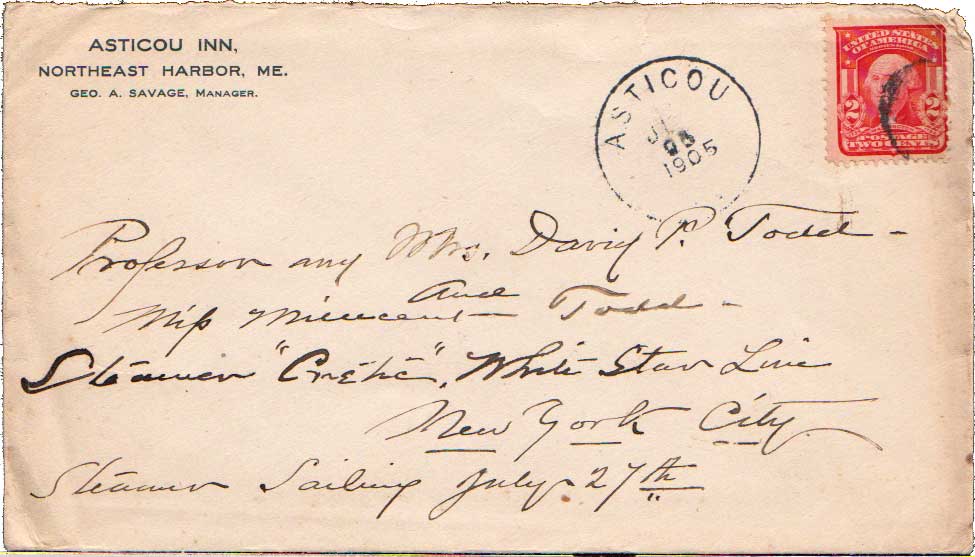 ASTICOU INN,
NORTHEAST HARBOR, ME.
GEO. A. SAVAGE, MANAGER.
ASTICOU
1905
UNITED STATES
OF AMERICA
2 2
POSTAGE
TWO CENTS
Professor and Mrs. David P. Todd -
And
Miss Millicent Todd -
Steamer "Cretic", White Star Line
New York City.
Steamer Sailing July 27th